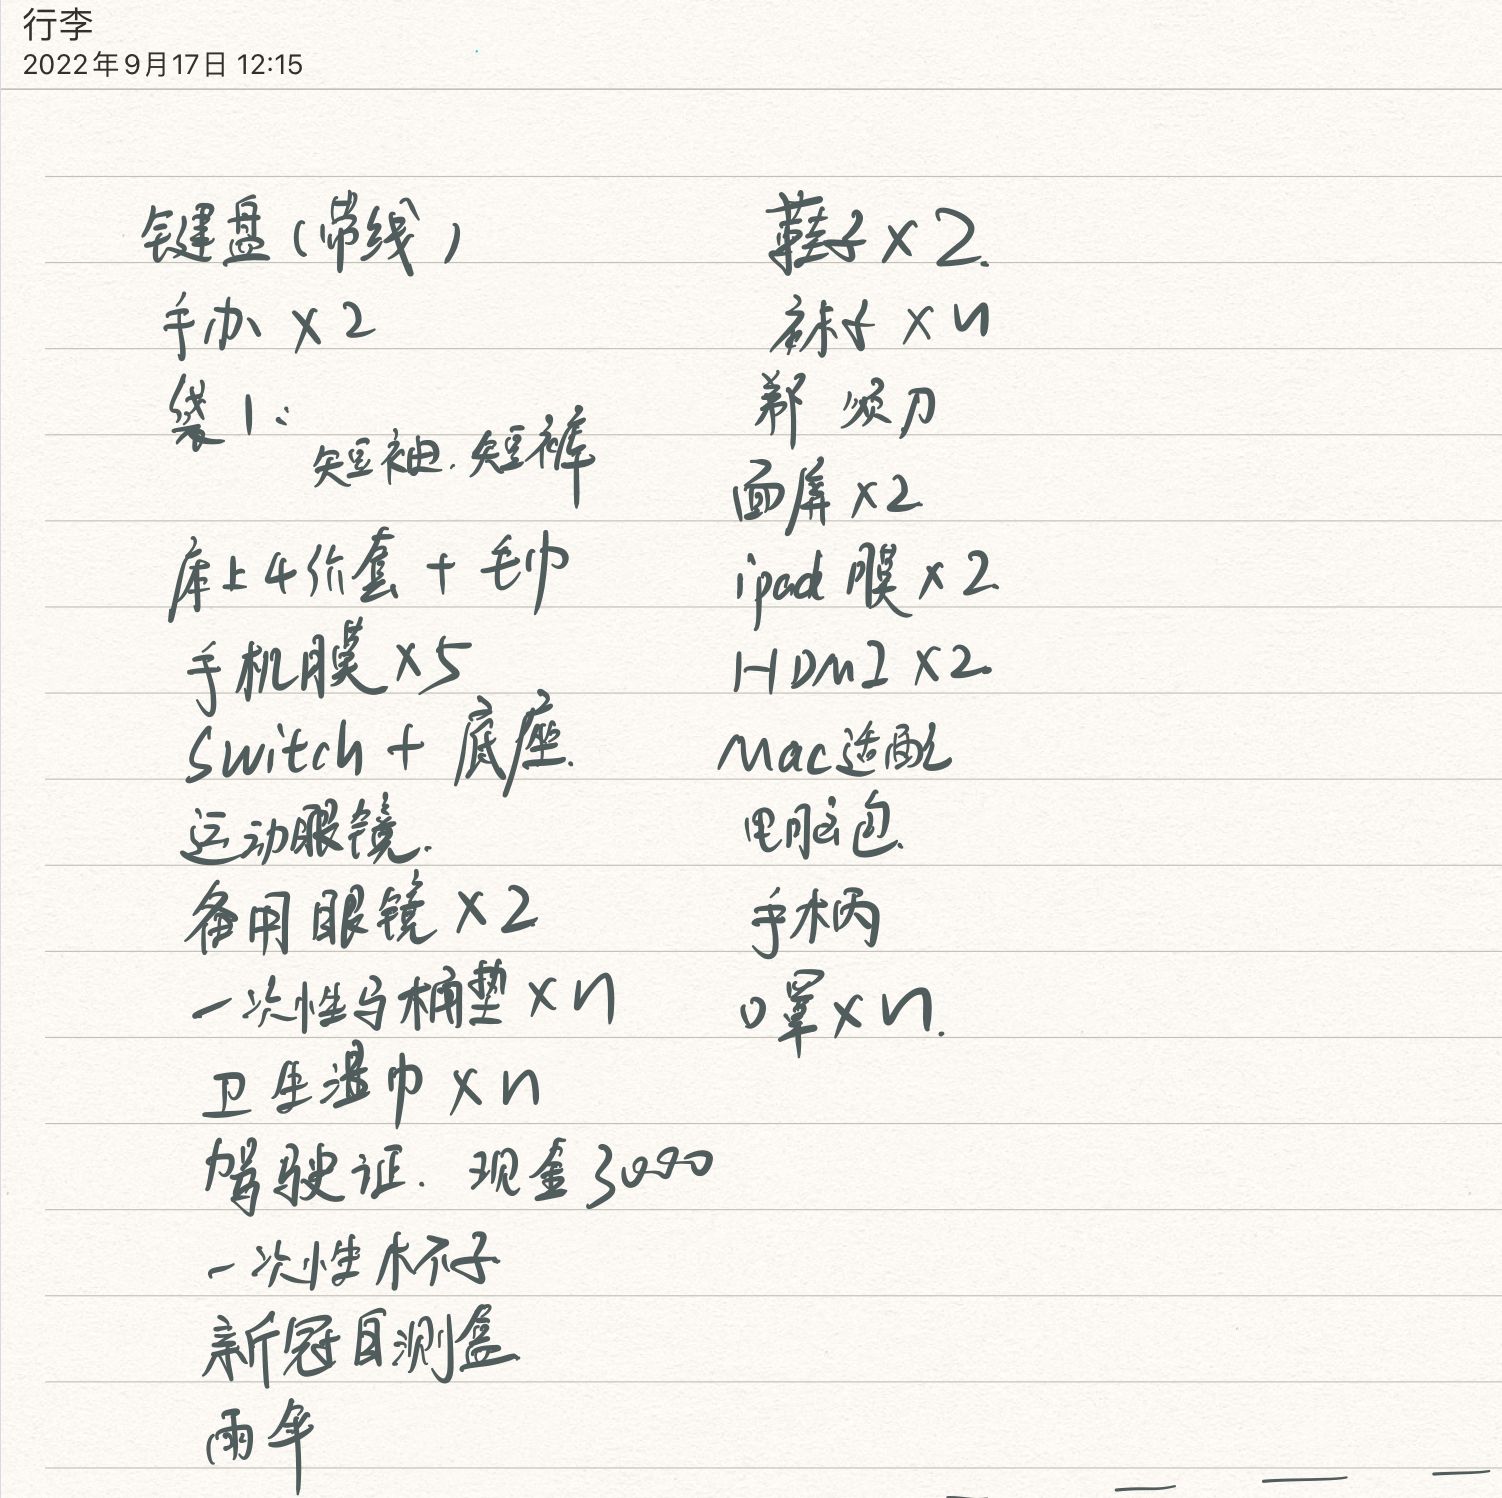 行李
2022年9月17日 12:15
键盘(带线)
手办 x2
袋1:
短袖.短裤
床上4件套 + 毛巾
手机膜 x5
Switch + 底座.
运动眼镜.
备用眼镜 x2
一次性马桶垫 x n
卫生湿巾 x n
驾驶证. 现金3000
一次性杯子
新冠自测盒
雨伞
鞋子 x 2.
袜子 x n
剃须刀
面屏 x2
ipad 膜 x 2
HDMI x2.
Mac适配
电脑包.
手柄
口罩 x n.